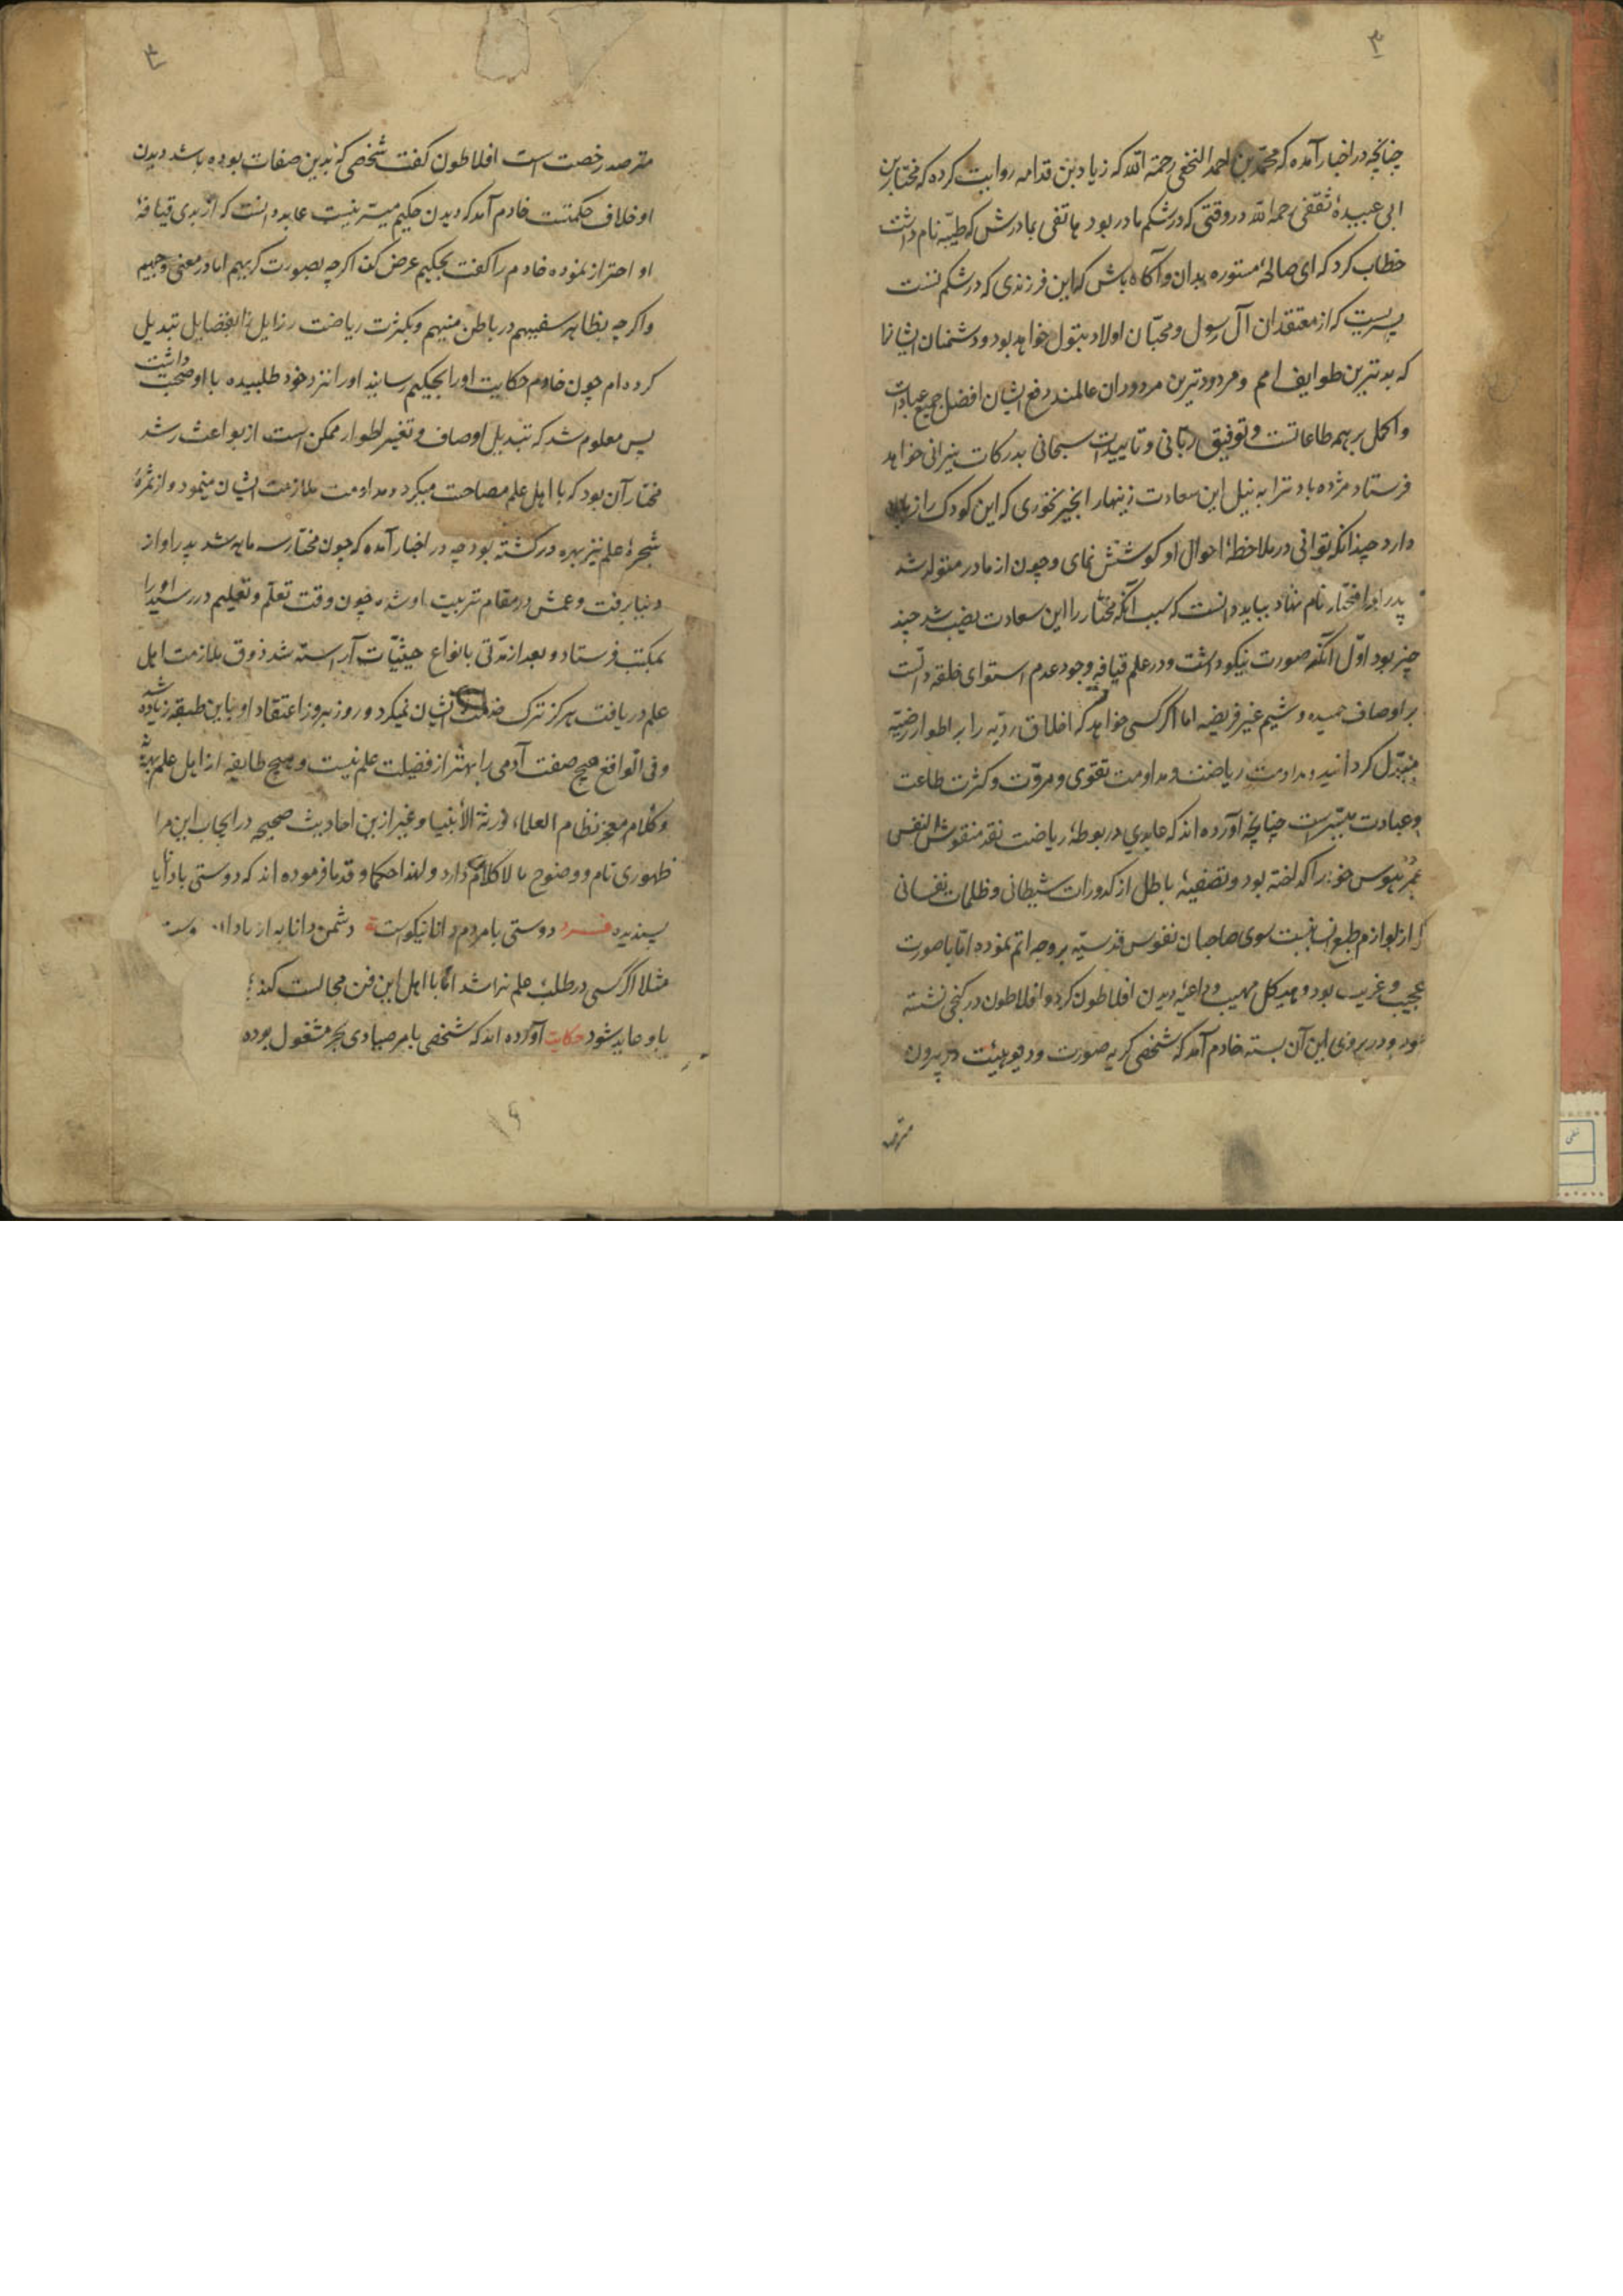 ۳
چنانچه در اخبار آمده که محمد بن احمد النخفی رحمة الله که زیاد بن قدامه روایت کرده که مختار بن
ابی عبیدهٔ ثقفی رحمه الله در وقتی که در شکم مادر بود هاتفی بمادرش که طیبه نام داشت
خطاب کرد که ای صالحهٔ مستوره بدان و آکاه باش که این فرزندی که در شکم تست
پسریست که از معتقدان آل رسول و محبّان اولاد بتول خواهد بود و دشمنان ایشانرا
که بدترین طوایف امم و مردودترین مردودان عالمند دفع ایشان افضل جمیع عبادات
و اکمل برهم طاعاتست و توفیق ربّانی و تاییدات سبحانی بدرکات نیرانی خواهد
فرستاد مژده باد ترا به نیل این سعادت زینهار انجیر نخوری که این کودک را زیان
دارد چندانکه توانی در ملاحظهٔ احوال او کوشش نمای و چون از مادر متولد شد
پدر او را مختار نام نهاد بباید دانست که سبب آنکه مختار را این سعادت نصیب شد چند
چیز بود اوّل آنکه صورت نیکو داشت و در علم قیافه وجود عدم استوای خلقه دالست
بر اوصاف حمیده و شیم غیر فریضه اما اکر کسی خواهد که اخلاق ردیّه را بر اطوار رضیّه
مبدّل کرداند بمداومت ریاضت و مداومت تقوی و مروّت و کثرت طاعت
و عبادت میسّرست چنانچه آورده اند که عابدی در بوطهٔ ریاضت نقد منقوش النفس
هوس خود را کداخته بود و تصفیهٔ باطل از کدورات شیطانی و ظلمات نفسانی
که از لوازم طبع انسانیست سوی صاحبان نفوس قدسیّه بر وجه اتم نموده امّا با صورت
عجیب و غریب بود و هیکل مهیب و داعیهٔ دیدن افلاطون کرد و افلاطون در کنجی نشسته
بود و در بروی این آن بسته خادم آمد که شخصی کریه صورت و دیو هیئت در بیرون
مترصد
۴
مترصد رخصت است افلاطون کفت شخصی که بدین صفات بوده باشد دیدن
او خلاف حکمتست خادم آمد که دیدن حکیم میسّر نیست عابد دانست که از بدی قیافهٔ
او احتراز نموده خادم را کفت بحکیم عرض کن اکرچه بصورت کریهم اما در معنی وجیهم
و اکرچه بظاهر سفیهم در باطن منیهم و بکثرت ریاضت رزایل را بفضایل تبدیل
کرده ام چون خادم حکایت او را بحکیم رسانید او را نزد خود طلبیده با او صحبت داشت
پس معلوم شد که تبدیل اوصاف و تغییر اطوار ممکن است از بواعث رشد
مختار آن بود که با اهل علم مصاحبت میکرد و مداومت بملازمت ایشان مینمود و از ثمرهٔ
شجرهٔ علم نیز بهره ور کشته بود چه در اخبار آمده که چون مختار سه ماهه شد پدر او از
دنیا برفت و عمش در مقام تربیت او شد چون وقت تعلّم و تعلیم در رسید او را
بمکتب فرستاد و بعد از مدّتی بانواع حیثیّات آراسته شد ذوق ملازمت اهل
علم دریافت هرکز ترک خدمت ایشان نمیکرد و روز بروز اعتقاد او باین طبقه زیاده شد
و فی الواقع هیچ صفت آدمی را بهتر از فضیلت علم نیست و هیچ طایفه از اهل علم بهتر نه
و کلام معجز نظام العلماء ورثة الأنبیا و غیر ازین احادیث صحیحه در ایجاب این مرا
ظهوری تام و وضوح ما لا کلام دارد و لهذا حکما و قدما فرموده اند که دوستی با دانا
پسندیده فرد دوستی با مردم دانا نیکوست دشمن دانا به از نادان دوست
مثلا اکر کسی در طلب علم نباشد امّا با اهل این فن مجالست کند
باو عاید شود حکایت آورده اند که شخصی بامر صیادی بحر مشغول بوده